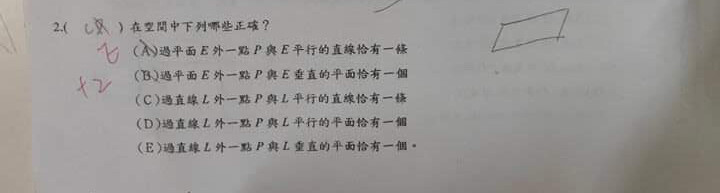 2.( ) 在空間中下列哪些正確?
(A)過平面 E 外一點 P 與 E 平行的直線恰有一條
(B)過平面 E 外一點 P 與 E 垂直的平面恰有一個
+2
(C)過直線 L 外一點 P 與 L 平行的直線恰有一條
(D)過直線 L 外一點 P 與 L 平行的平面恰有一個
(E)過直線 L 外一點 P 與 L 垂直的平面恰有一個。